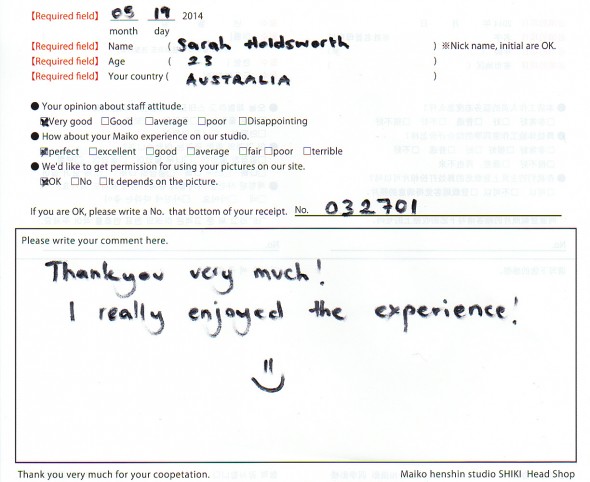 【Required field】 05 19 2014
month day
【Required field】 Name ( Sarah Holdsworth ) ※Nick name, initial are OK.
【Required field】 Age ( 23 )
【Required field】 Your country ( AUSTRALIA )
● Your opinion about staff attitude.
☒Very good □Good □average □poor □Disappointing
● How about your Maiko experience on our studio.
☒perfect □excellent □good □average □fair □poor □terrible
● We'd like to get permission for using your pictures on our site.
☒OK □No □It depends on the picture.
If you are OK, please write a No. that bottom of your receipt. No. 032701
Please write your comment here.
Thankyou very much!
I really enjoyed the experience!
Thank you very much for your coopetation. Maiko henshin studio SHIKI Head Shop